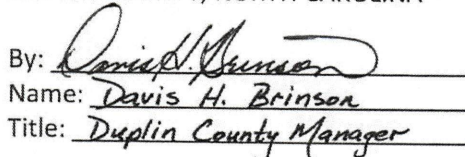 NORTH CAROLINA
By: Davis H. Brinson
Name: Davis H. Brinson
Title: Duplin County Manager